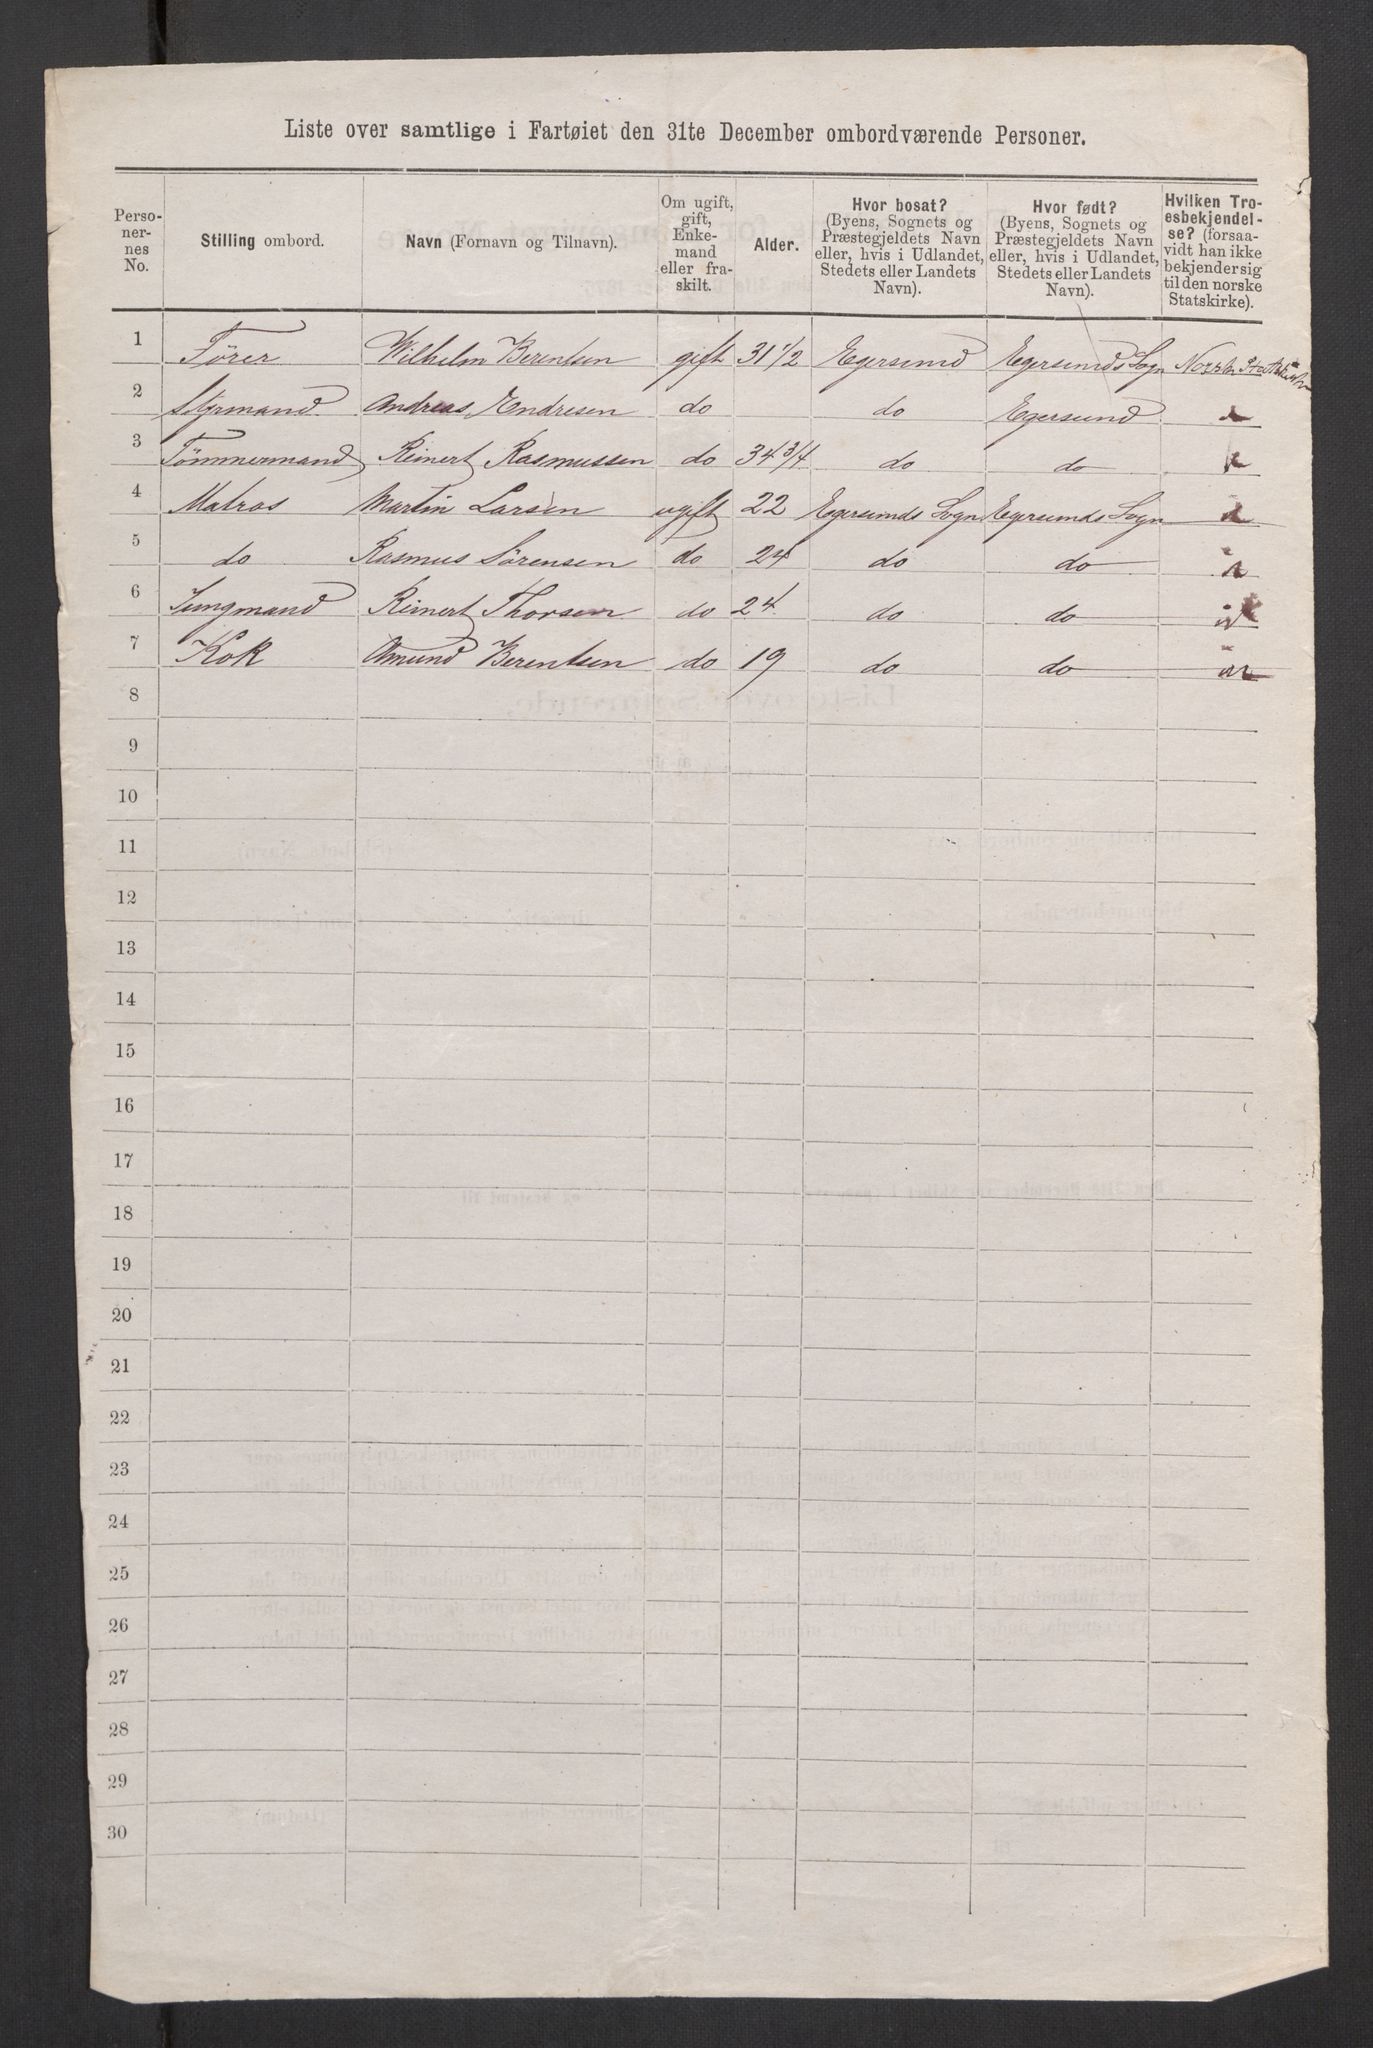 Liste over samtlige i Fartøiet den 31te December ombordværende Personer.
Perso-
ner-
nes
No.
Stilling ombord.
Navn (Fornavn og Tilnavn).
Om ugift,
gift,
Enke-
mand
eller fra-
skilt.
Alder.
Hvor bosat?
(Byens, Sognets og
Præstegjeldets Navn
eller, hvis i Udlandet,
Stedets eller Landets
Navn).
Hvor født?
(Byens, Sognets og
Præstegjeldets Navn
eller, hvis i Udlandet,
Stedets eller Landets
Navn).
Hvilken Tro-
esbekjendel-
se? (forsaa-
vidt han ikke
bekjender sig
til den norske
Statskirke).
1 Förer Wilhelm Berentsen gift 31 1/2 Egersund Egersunds Sogn Norsk
2 Styrmand Andreas Endresen do do Egersund
3 Tömmermand Reinert Rasmussen do 34 3/4 do do
4 Matros Martin Larsen ugift 22 Egersunds Sogn Egersunds Sogn
5 do Rasmus Sörensen do 24 do do
6 Jungmand Reinert Thorsen do 24. do do
7 Kok Amund Berentsen do 19 do do
8
9
10
11
12
13
14
15
16
17
18
19
20
21
22
23
24
25
26
27
28
29
30